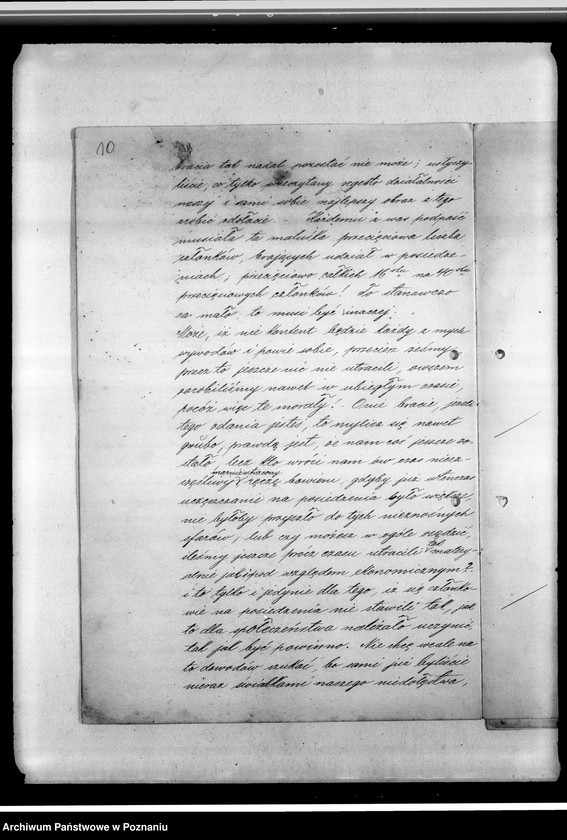 10
bracia tak nadal pozostać nie może; usłyszy-
liście, co tylko odczytany regestr działalności
naszej i sami sobie najlepszy obraz z tego
zrobić zdołacie. Każdemu z was podpaść
musiała ta maluśka przecięciowa liczba
członków, biorących udział w posiedze-
niach; przecięciowo całkich 16stu na 40stu
przecięciowych członków! To stanowczo
za mało, to musi być inaczej.
Może, iż nie kontent będzie każdy z mych
wywodów i powie sobie, przecież żeśmy
przez to jeszcze nic nie utracili, owszem
zarobiliśmy nawet w ubiegłym czasie,
pocóż więc te morały! – Onie bracie, jeżeli
tego zdania jesteś, to mylisz się nawet
grubo, prawdą jest, że nam coś jeszcze zo-
stało, lecz kto wróci nam ów czas niesz-
częśliwy zmarnienbaczony ręczę bowiem, gdyby już wtenczas
uczęszczanie na posiedzenia było większe
nie byłoby przyszło do tych nieznośnych
sfarów, lub czy możesz w ogóle osądzić,
ileśmy jeszcze prócz czasu utracili tak mater-
alnie jak i pod względem ekonomicznym?
i to tylko i jedynie dla tego, iż się członko-
wie na posiedzenia nie stawili tak, jak
to dla społeczeństwa należało uczynić,
tak jak być powinno. Nie chcę wcale na
to dowodów szukać, bo sami już byliście
nieraz świadkami naszego niedołęstwa,
Archiwum Państwowe w Poznaniu